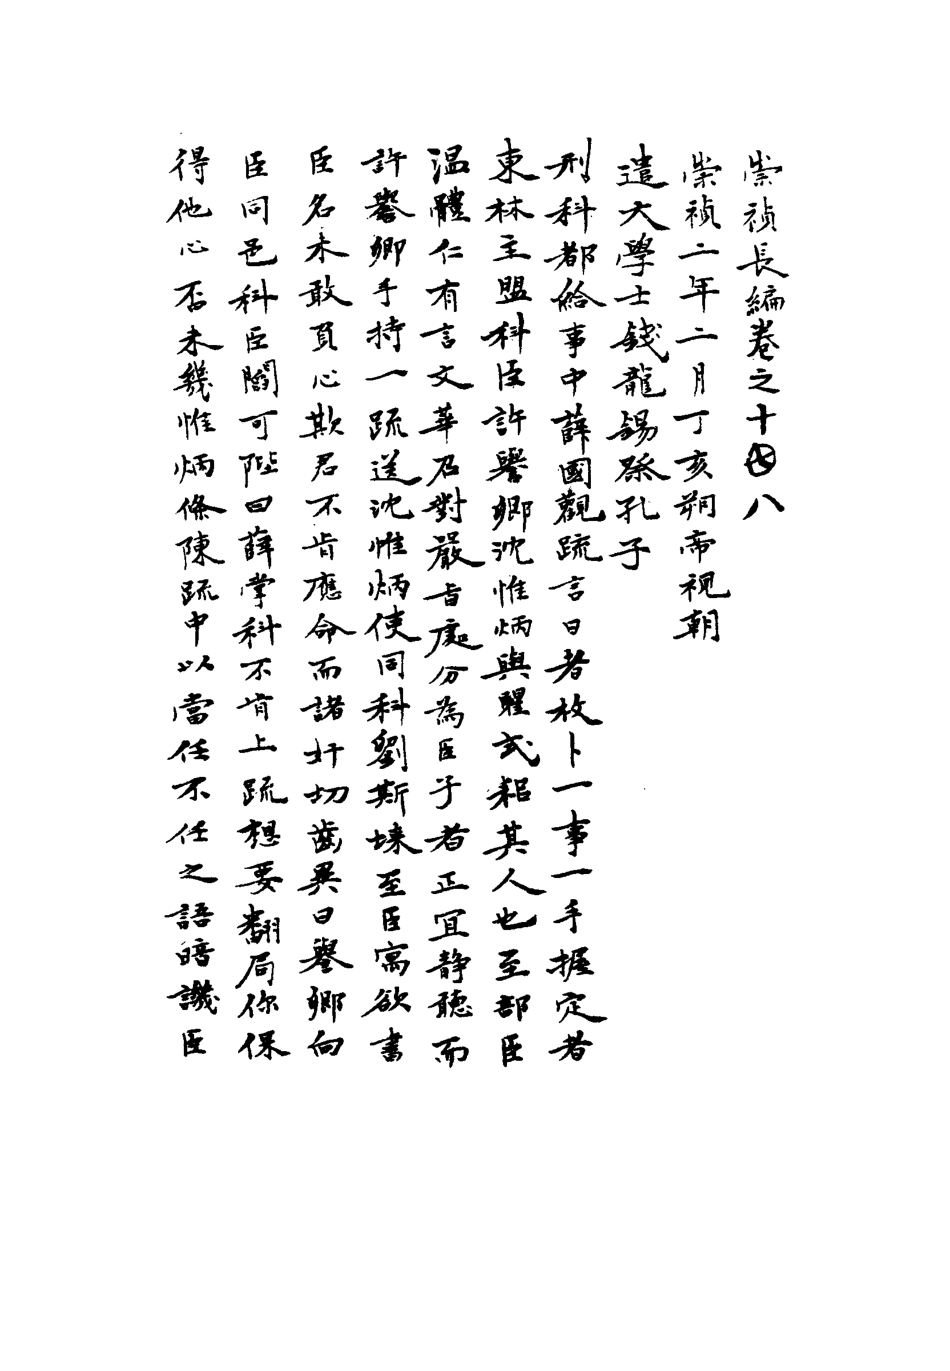 崇禎長編卷之十八
崇禎二年二月丁亥朔帝視朝
遣大學士錢龍錫祭孔子
刑科都給事中薛國觀疏言日者枚卜一事一手握定者
東林主盟科臣許譽卿沈惟炳與瞿式耜其人也至部臣
温體仁有言文華召對嚴旨處分為臣子者正宜静聽而
許譽卿手持一疏送沈惟炳使同科劉斯琜至臣寓欲書
臣名未敢負心欺君不肯應命而諸奸切齒異日譽卿向
臣同邑科臣閻可陛曰薛掌科不肯上疏想要翻局你保
得他心否未幾惟炳條陳疏中以當任不任之語暗譏臣